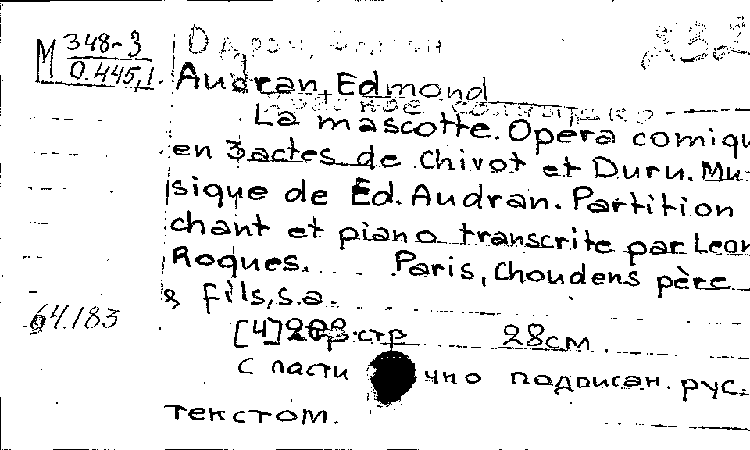 М 348-3
0.445,1.
Одран, Эдмон
232
Audran, Edmond
La mascotte. Opera comiqu
en 3 actes de Chivot et Duru. Mu-
sique de Ed. Audran. Partition
chant et piano transcrite par Leon
Roques. Paris, Choudens père
& fils, s.a.
64.183
[4] стр 28см.
с части чно подписан. рус.
текстом.